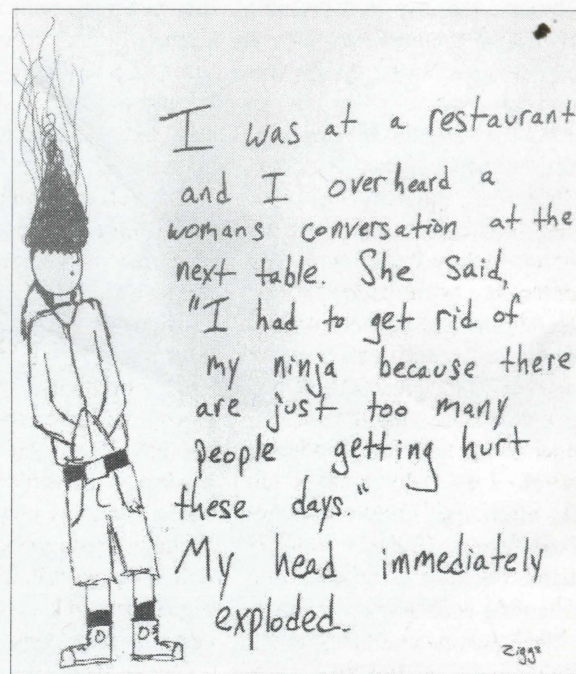 I was at a restaurant
and I overheard a
womans conversation at the
next table She said,
"I had to get rid of
my ninja because there
are just too many
people getting hurt
these days"
My head immediately
exploded.
ziggz